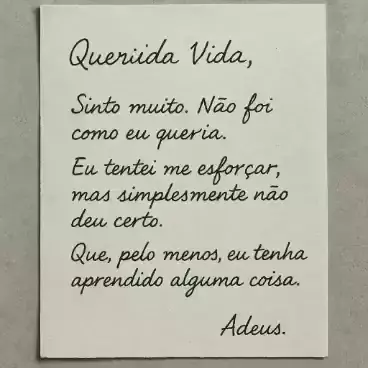 Queriida Vida,
Sinto muito. Não foi
como eu queria.
Eu tentei me esforçar,
mas simplesmente não
deu certo.
Que, pelo menos, eu tenha
aprendido alguma coisa.
Adeus.